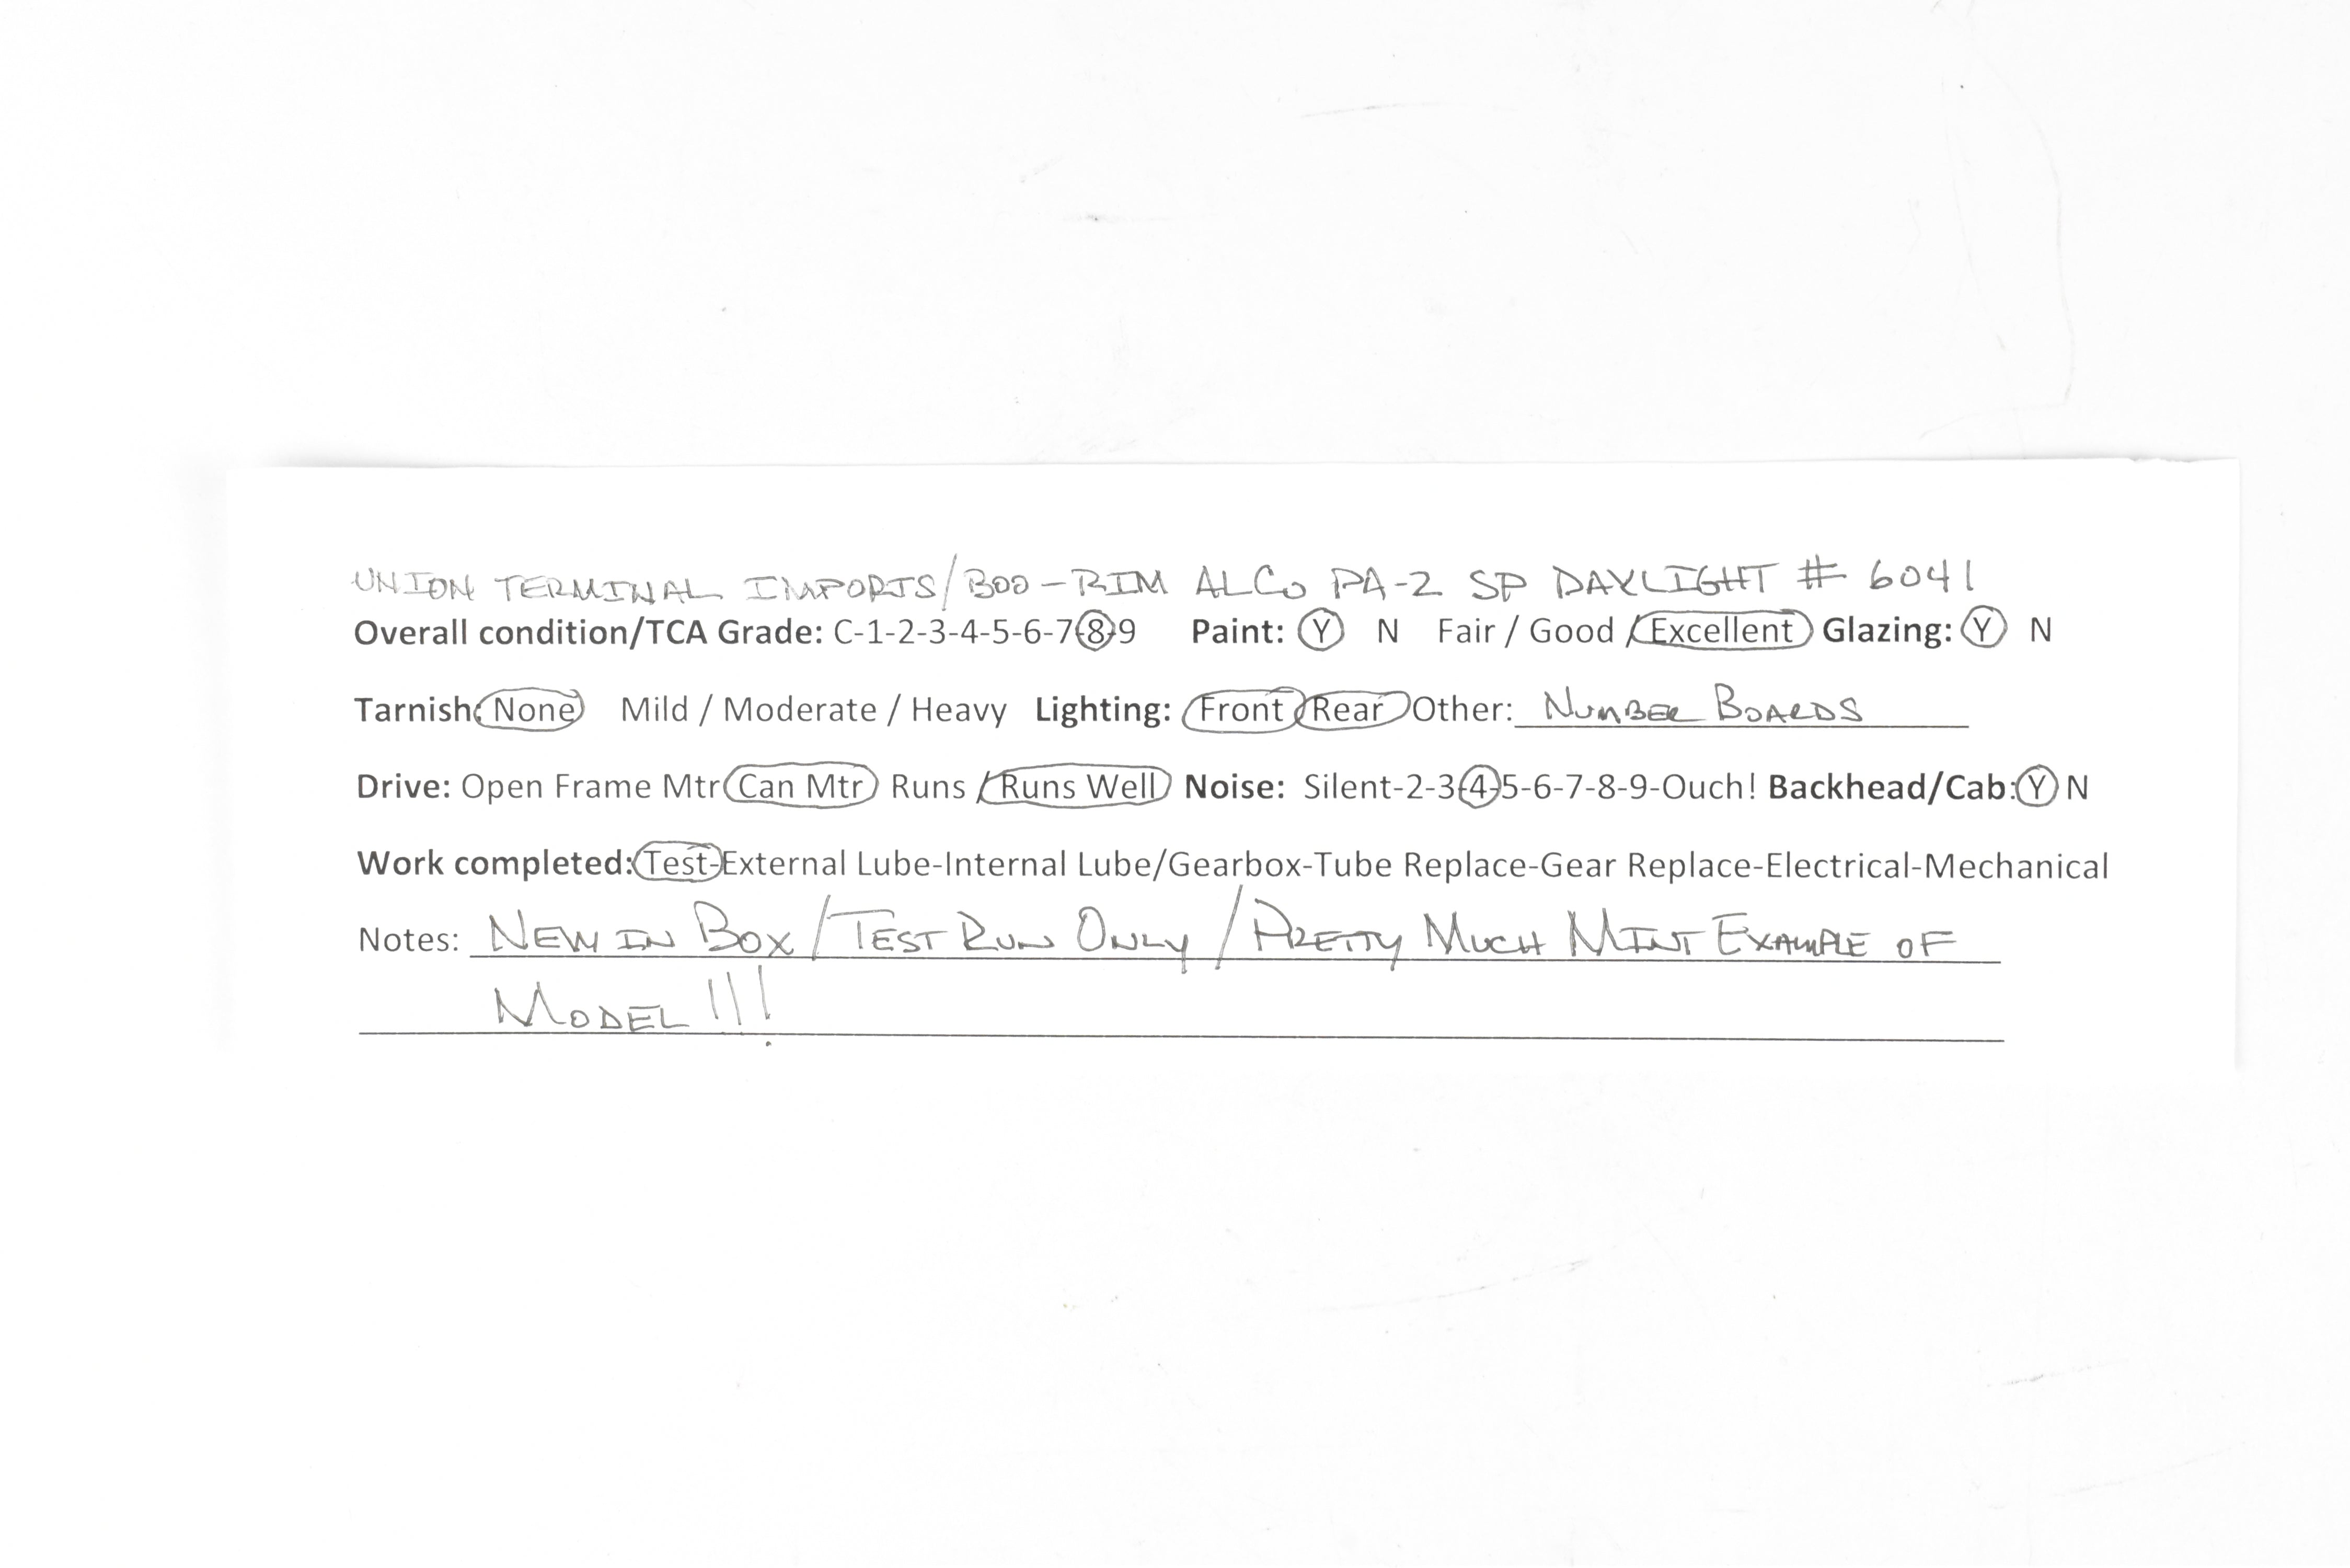 UNION TERMINAL IMPORTS/BOO-RIM ALCO PA-2 SP DAYLIGHT # 6041
Overall condition/TCA Grade: C-1-2-3-4-5-6-7-8-9 Paint: Y N Fair / Good / Excellent Glazing: Y N
Tarnish: None Mild / Moderate / Heavy Lighting: Front Rear Other: NUMBER BOARDS
Drive: Open Frame Mtr Can Mtr Runs / Runs Well Noise: Silent-2-3-4-5-6-7-8-9-Ouch! Backhead/Cab: Y N
Work completed: Test-External Lube-Internal Lube/Gearbox-Tube Replace-Gear Replace-Electrical-Mechanical
Notes: NEW IN BOX/TEST RUN ONLY/PRETTY MUCH MINT EXAMPLE OF
MODEL!!!